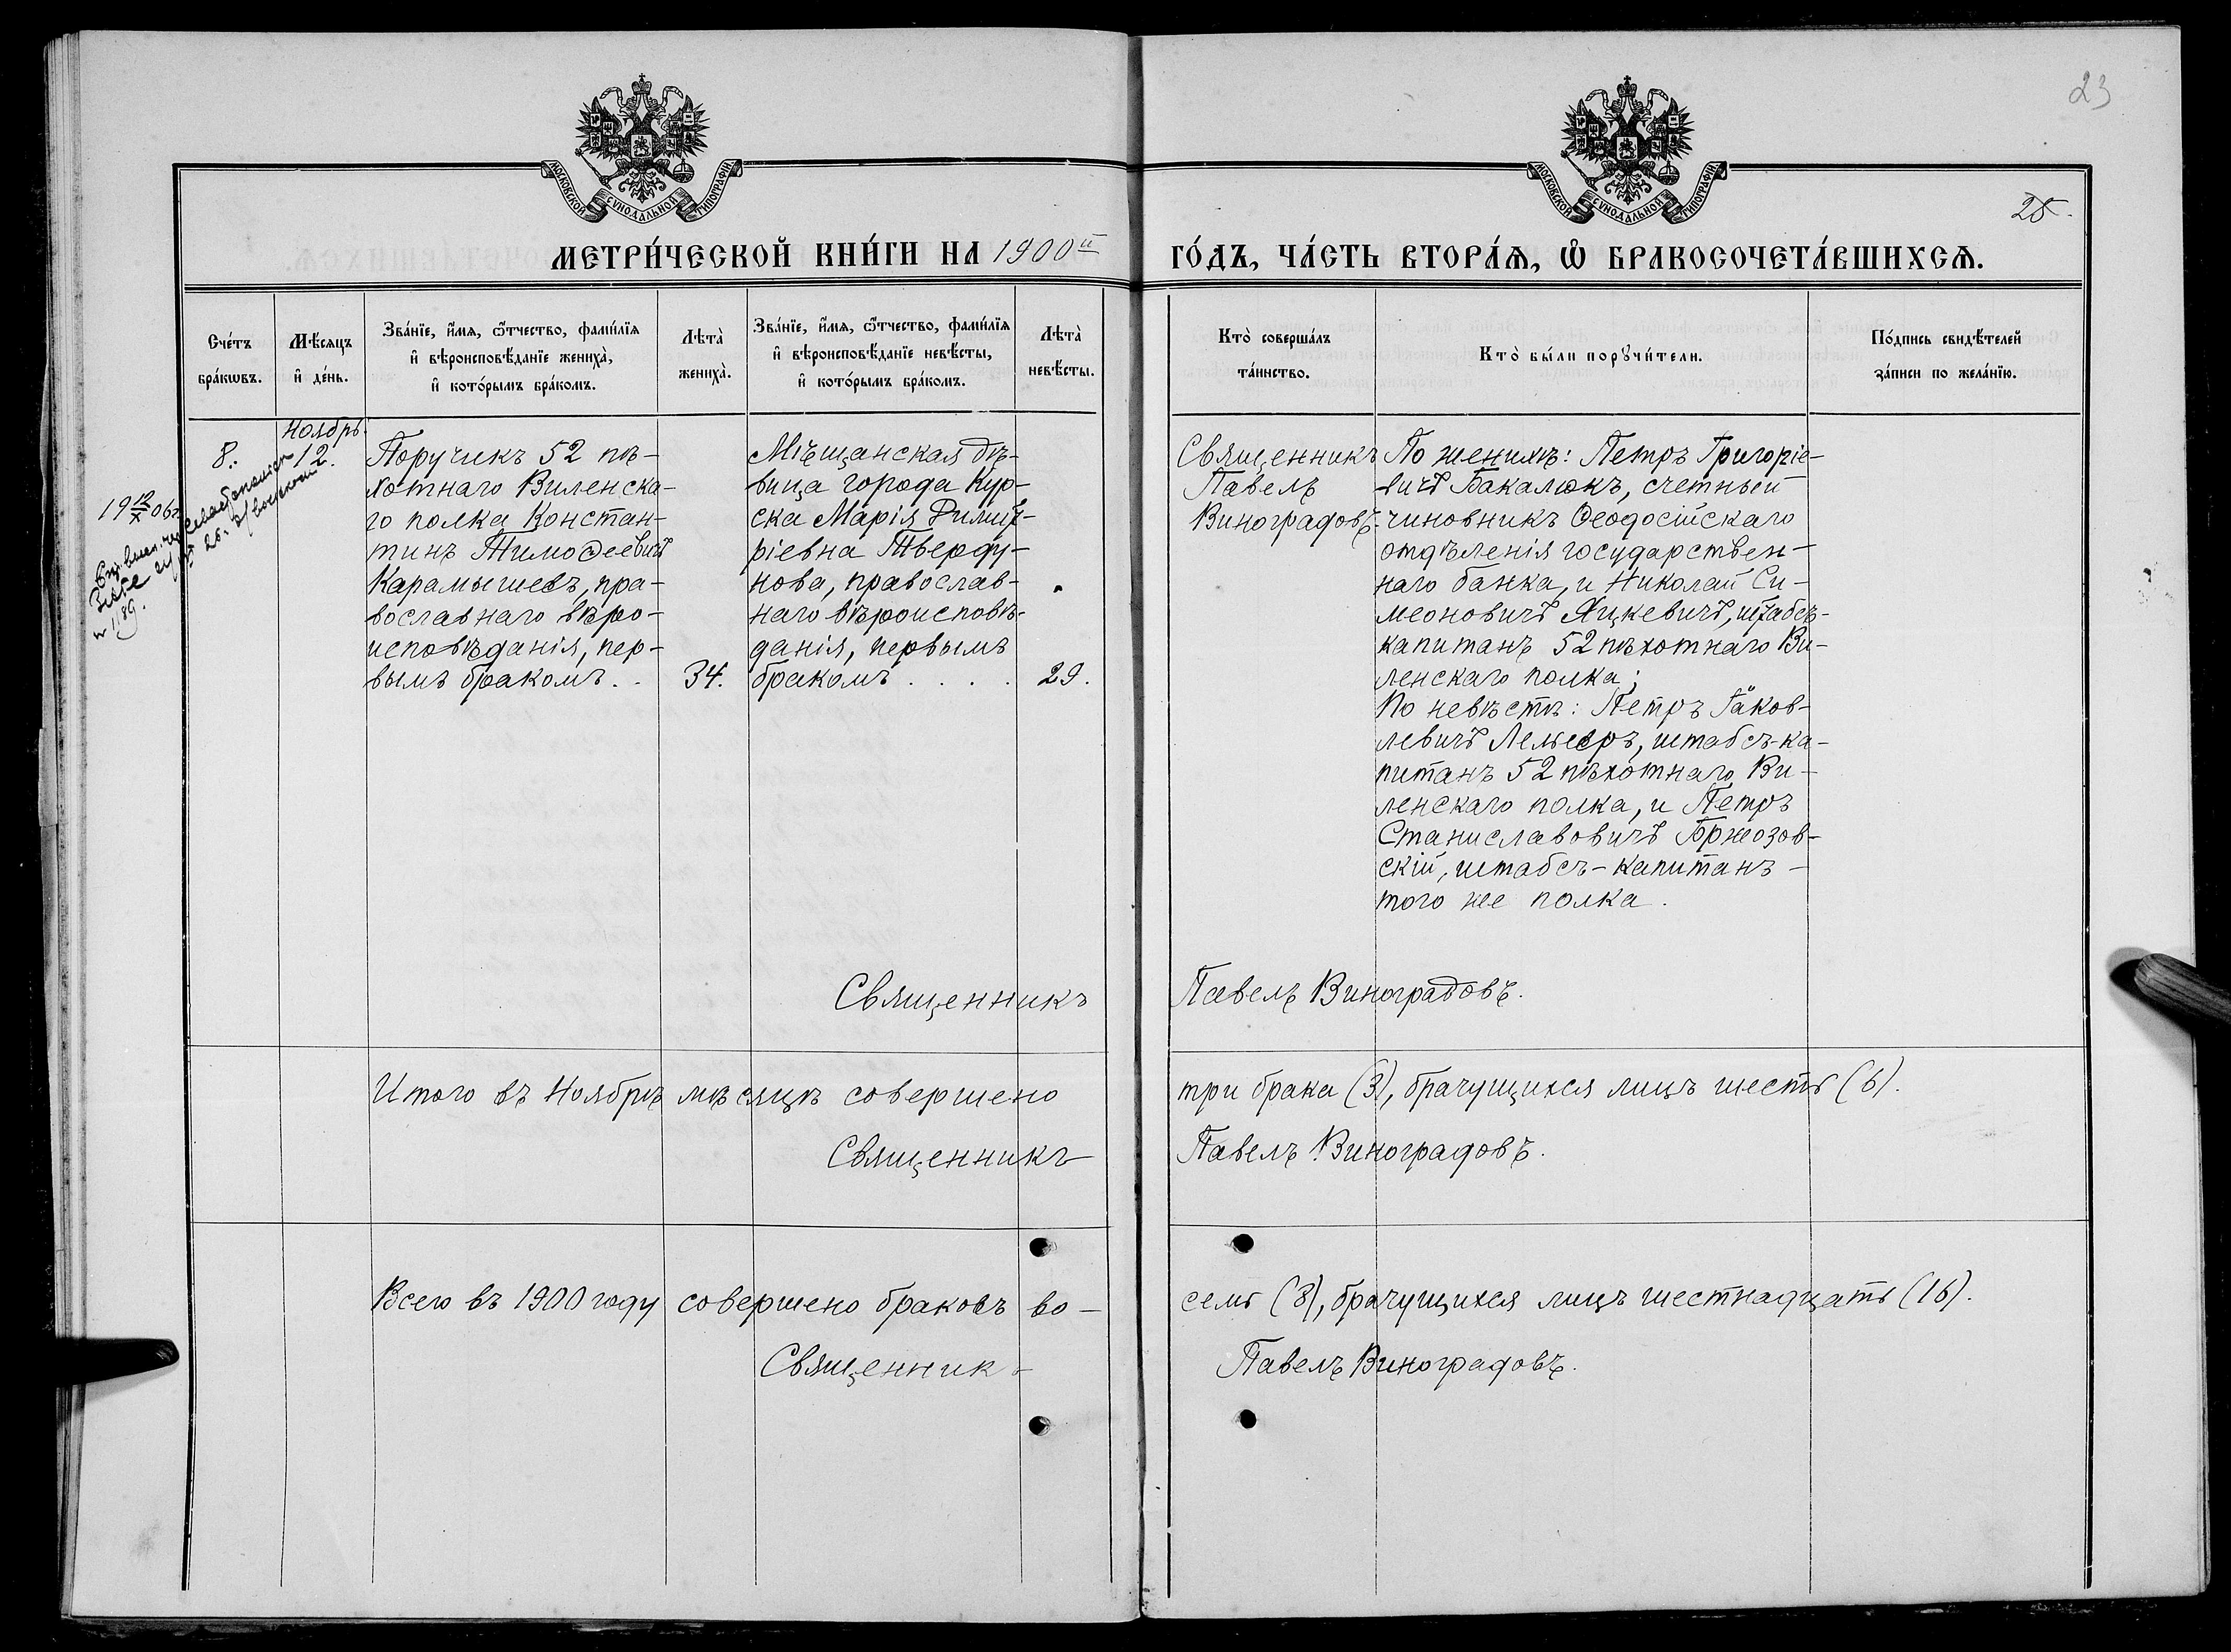 23
25.
МОСКОВСКОЙ СѴНОДАЛЬНОЙ ТИПОГРАФІИ.
МОСКОВСКОЙ СѴНОДАЛЬНОЙ ТИПОГРАФІИ.
МЕТРИ́ЧЕСКОЙ КНИ́ГИ НА 1900й
ГО́ДЪ, ЧА́СТЬ ВТОРА́Ѧ, Ѽ БРАКОСОЧЕТА́ВШИХСѦ.
Сче́тъ
бра́кѡвъ.
Мѣ́сяцъ
и҆ де́нь.
Зва́нїе, и҆́мѧ, ѻ҆́тчество, фами́лїѧ
и҆ вѣроисповѣ́данїе жениха̀,
и҆ кото́рымъ бра́комъ.
Лѣта̀
жениха̀.
Зва́нїе, и҆́мѧ, ѻ҆́тчество, фами́лїѧ
и҆ вѣроисповѣ́данїе невѣ́сты,
и҆ кото́рымъ бра́комъ.
Лѣта̀
невѣ́сты.
Кто̀ соверша́лъ
та́инство.
Кто̀ бы́ли порꙋчи́тели.
По́дпись свидѣ́телей
за́писи по жела́нїю.
8.
Ноябрь.
12.
Поручикъ 52 пѣ-
хотнаго Виленска-
го полка Констан-
тинъ Тимоѳеевичъ
Карамышевъ, пра-
вославнаго вѣро-
исповѣданія, пер-
вымъ бракомъ. .
34.
Мѣщанская дѣ-
вица города Кур-
ска Марія Димит-
ріевна Твердү-
нова, православ-
наго вѣроисповѣ-
данія, первымъ
бракомъ . . . .
29.
Священникъ
Павелъ
Виноградовъ.
По женихѣ: Петръ Григоріе-
вичъ Бакалюкъ, счетный
чиновникъ Ѳеодосійскаго
отдѣленія государствен-
наго банка, и Николай Си-
меоновичъ Яцкевичъ, штабсъ-
капитанъ 52 пѣхотнаго Ви-
ленскаго полка;
По невѣстѣ: Петръ Іаков-
левичъ Лельевръ, штабсъ-ка-
питанъ 52 пѣхотнаго Ви-
ленскаго полка, и Петръ
Станиславовичъ Бржозов-
скій, штабсъ-капитанъ -
того же полка.
Священникъ Павелъ Виноградовъ.
Итого въ Ноябрѣ мѣсяцѣ совершено три брака (3), брачущихся лицъ шесть (6).
Священникъ Павелъ Виноградовъ.
Всего въ 1900 году совершено браковъ во- семь (8), брачущихся лицъ шестнадцать (16).
Священникъ Павелъ Виноградовъ.